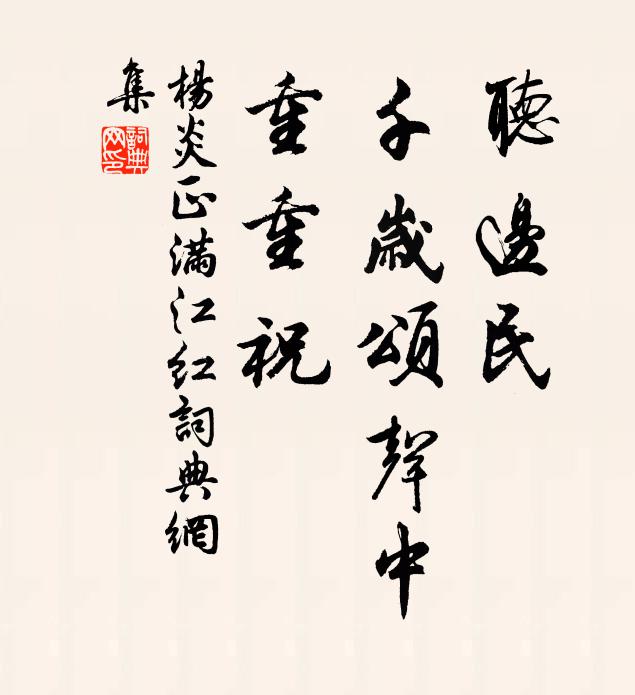 聽邊民
千歲頌聲中
重重祝
楊炎正滿江红詞典網
集
詞典網印